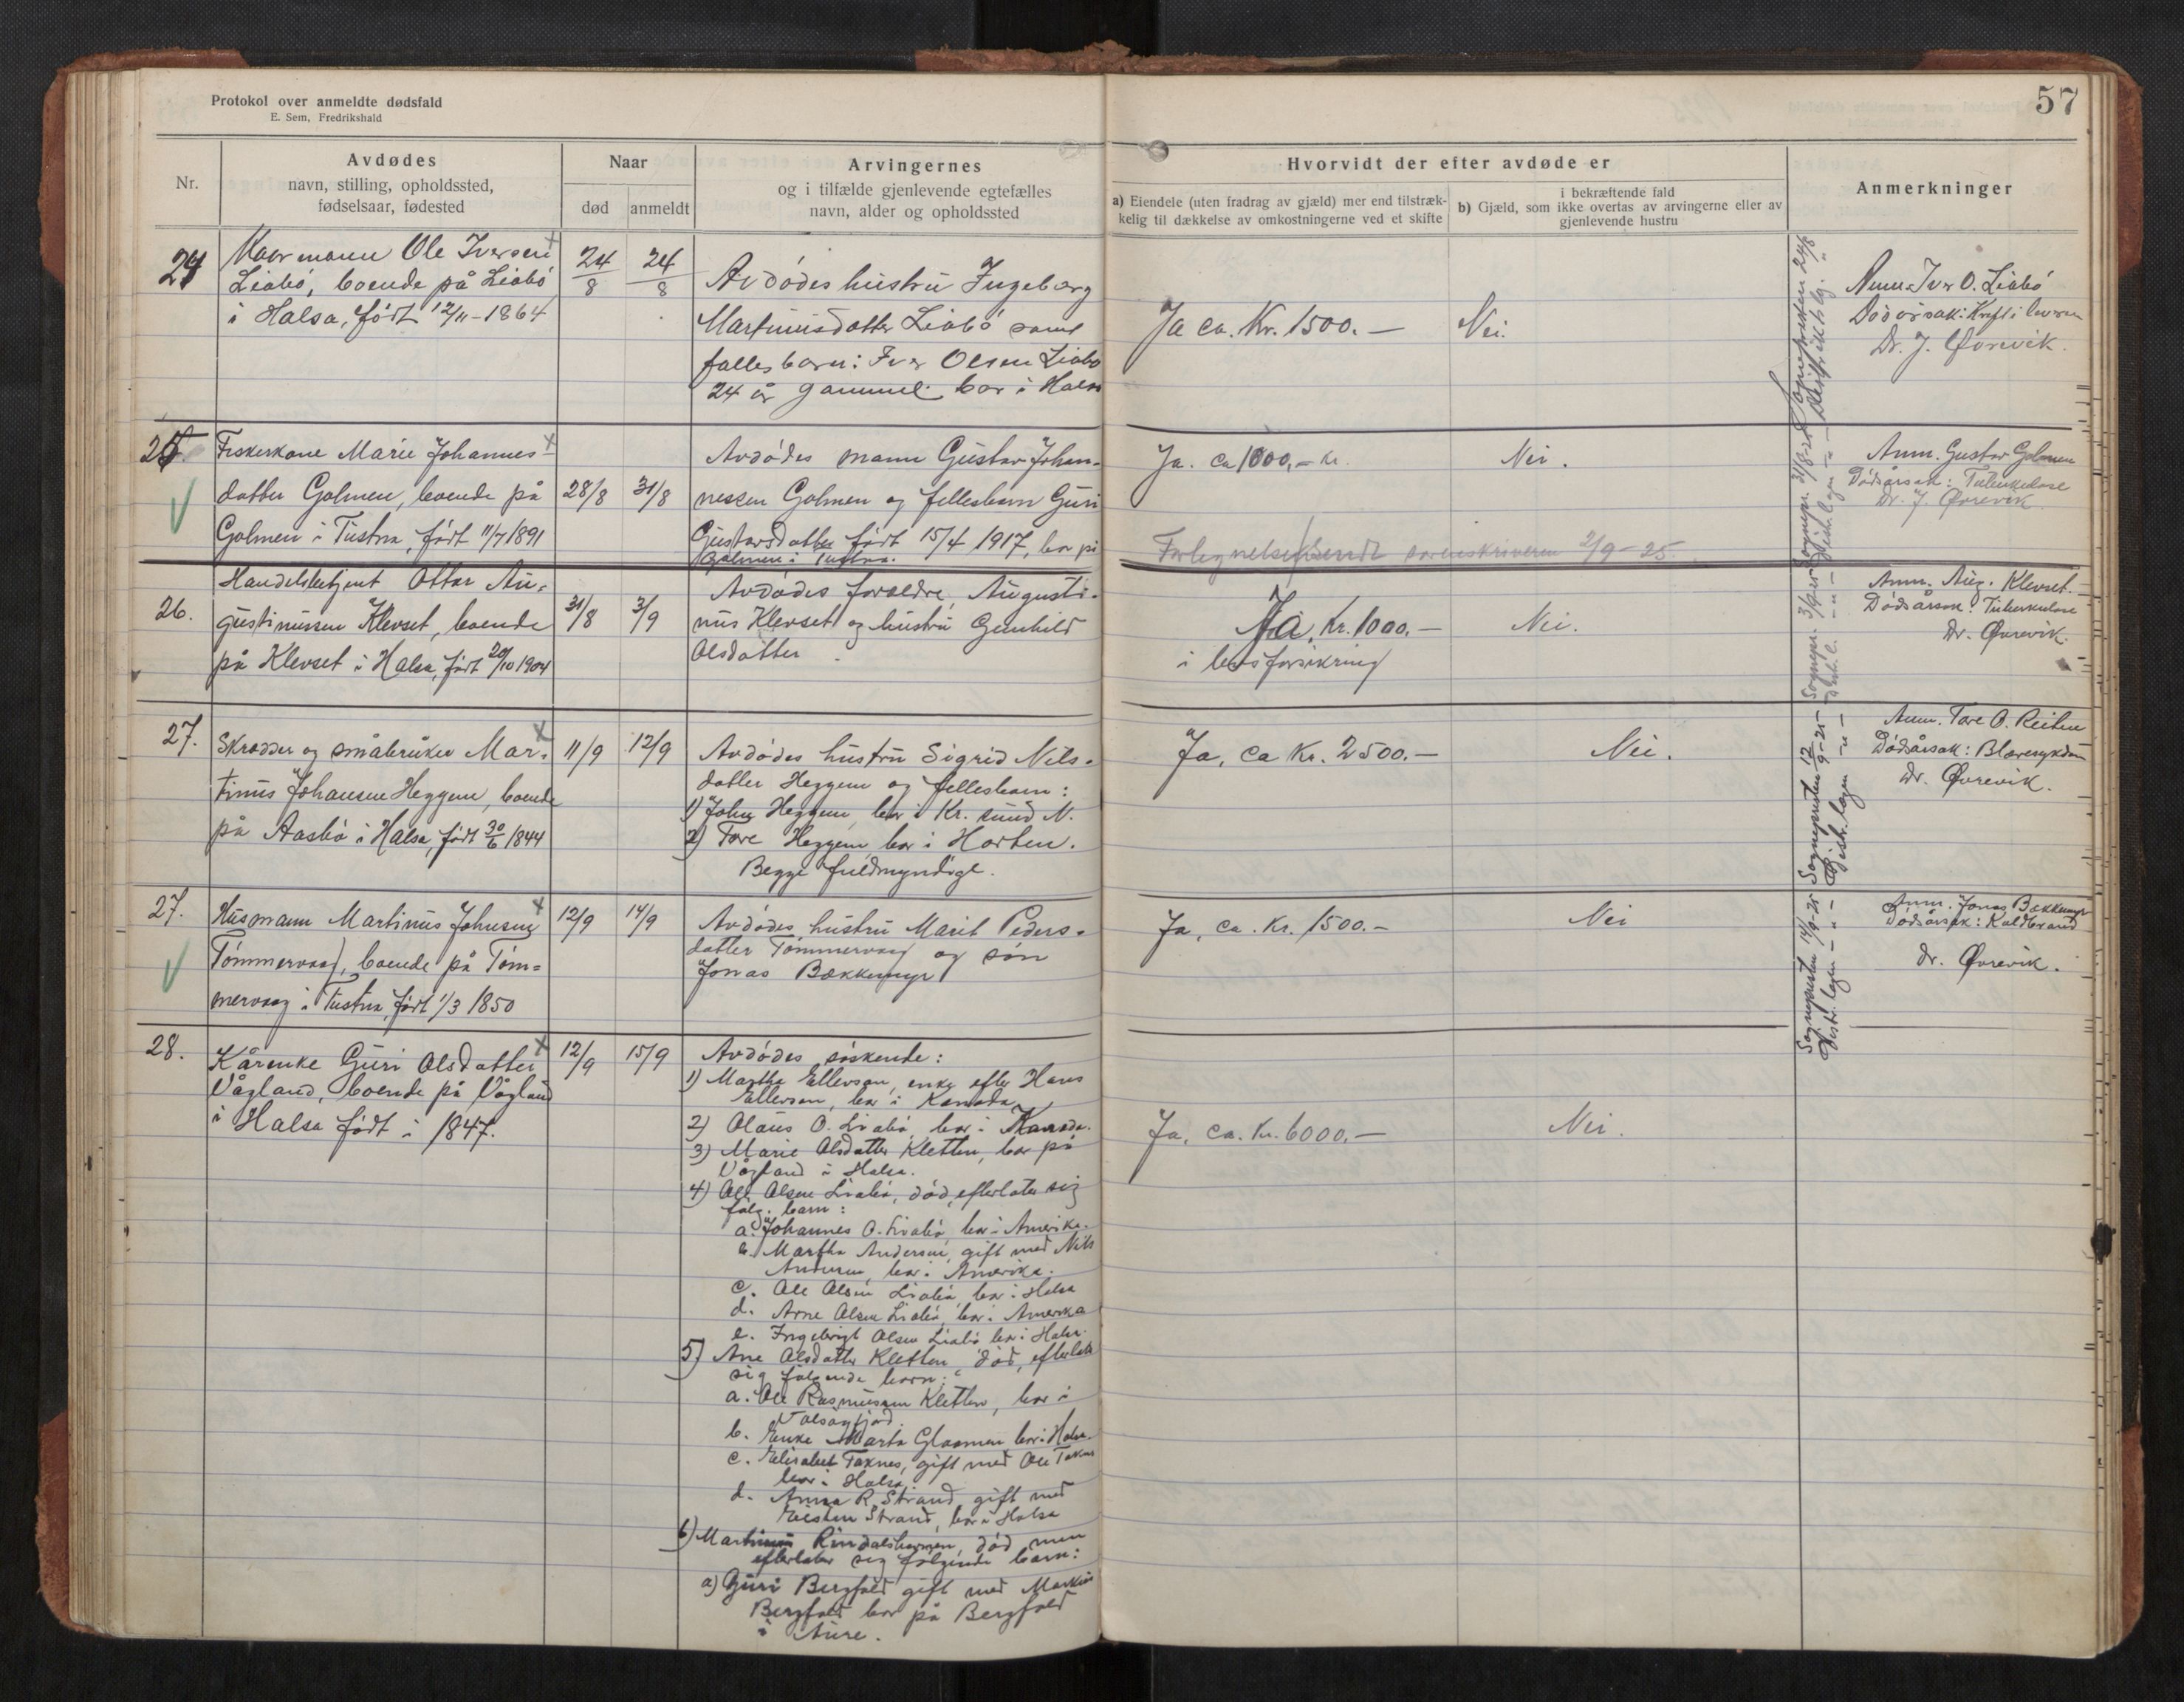 Protokol over anmeldte dødsfald
E. Sem, Fredrikshald
57
Nr.
Avdødes
navn, stilling, opholdssted,
fødselsaar, fødested
Naar
død
anmeldt
Arvingernes
og i tilfælde gjenlevende egtefælles
navn, alder og opholdssted
Hvorvidt der efter avdøde er
a) Eiendele (uten fradrag av gjæld) mer end tilstræk-
kelig til dækkelse av omkostningerne ved et skifte
i bekræftende fald
b) Gjæld, som ikke overtas av arvingerne eller av
gjenlevende hustru
Anmerkninger
24
Kaarmann Ole Iversen
Liabö, boende på Liabö
i Halsa, född 12/11-1864
24/8
24/8
Avdödes hustru Ingeborg
Martinusdatter Liabö samt
fællesbarn: Iver Olsen Liabö
24 år gammel bor i Halsa
Ja ca. Kr. 1500.—
Nei.
Anm. Iver O. Liabö
Dödsårsak: Kreft i leveren
Dr. J. Øvrevik.
25
Fiskerkone Marie Johannes-
datter Golmen, boende på
Golmen i Tustna, född 11/7 1891
28/8
31/8
Avdödes mann Gustav Johan-
nessen Golmen og fellesbarn Guri
Gustavsdatter född 15/4 1917, bor på
Golmen i Tustna.
Ja. ca 1000,- kr.
Nei.
Fortegnelse sendt sorenskriveren 2/9-25.
Anm. Gustav Golmen
Dödsårsak: Tuberkulose
Dr. J. Øvrevik
26.
Handelsbetjent Ottar Au-
gustinussen Klevset, boende
på Klevset i Halsa, född 20/10 1904
31/8
3/9
Avdödes foreldre, Augusti-
nus Klevset og hustru Gunhild
Olsdatter.
Ja, Kr. 1000.—
i livsforsikring
Nei.
Anm. Aug. Klevset.
Dödsårsak: Tuberkulose
Dr. Øvrevik.
27.
Skredder og småbruker Mar-
tinus Johansen Heggem, boende
på Aasbö i Halsa, född 30/6 1844
11/9
12/9
Avdödes hustru Sigrid Nils-
datter Heggem og fellesbarn:
1) John Heggem, bor i Kr.sund N.
2) Tore Heggem bor i Horten.
Begge fuldmyndige.
Ja, ca Kr. 2500.—
Nei.
Anm. Tore O. Reiten
Dödsårsak: Blæresykdom
Dr. Øvrevik.
27.
Husmann Martinus Johnsen
Tömmervaag, boende på Töm-
mervaag i Tustna, född 1/3 1850
12/9
14/9
Avdödes hustru Marit Peders-
datter Tömmervaag og sön
Jonas Bækkemyr
Ja, ca. Kr. 1500.-
Nei
Anm. Jonas Bækkemyr
Dödsårsak: Koldbrand
Dr. Øvrevik.
28.
Kårenke Guri Olsdatter
Vågland, boende på Vågland
i Halsa född i 1847.
12/9
15/9
Avdödes söskende:
1) Martha Ellevsen, enke efter Hans
Ellevsen, bor i Kanada
2) Olaus O. Liabö, bor i Kanada.
3) Marie Olsdatter Kletten, bor på
Vågland i Halsa.
4) Ole Olsen Liabö, död, efterlater sig
følg. barn:
a. Johannes O. Liabö, bor i Amerika.
b. Martha Andersen, gift med Nils
Andersen, bor i Amerika.
c. Ole Olsen Liabö bor i Halsa
d. Arne Olsen Liabö, bor i Amerika
e. Ingebrigt Olsen Liabö bor i Halsa.
5) Ane Olsdatter Kletten, död, efterlater
sig følgende barn:
a. Ole Rasmussen Kletten, bor i
Valsöyfjord.
b. Enke Marta Glaamen bor i Halsa.
c. Elisabet Taknes, gift med Ole Taknes
bor i Halsa
d. Anna R. Strand gift med
Eisten Strand, bor i Halsa
6) Rindalsharmen, död men
efterlater sig følgende barn:
a) Guri Bergfald gift med Markus
Bergfald bor på Bergfald
i Aure.
Ja, ca. Kr. 6000.—
Nei.
Sognepresten 24/8
Sognepr. 31/8-25
Sognepr. 3/9-25
Sognepresten 12/9-25
Distr. lægen — " —
Sognepresten 14/9-25
Distr. lægen — " —